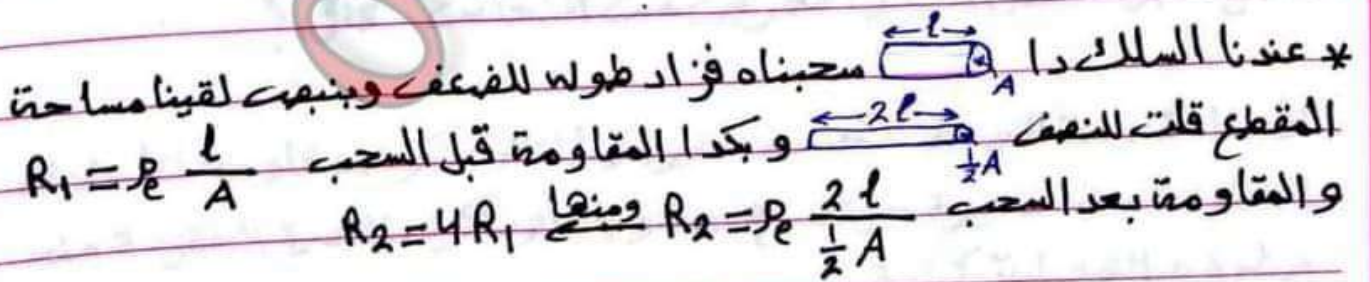 * عندنا السلك دا l A سحبناه فزاد طوله للضعف وبنبص لقينا مساحة
المقطع قلت للنصف 2l ½A وبكدا المقاومة قبل السحب R₁ = ρₑ l/A
والمقاومة بعد السحب R₂ = ρₑ 2l/(½A) ومنها R₂ = 4R₁